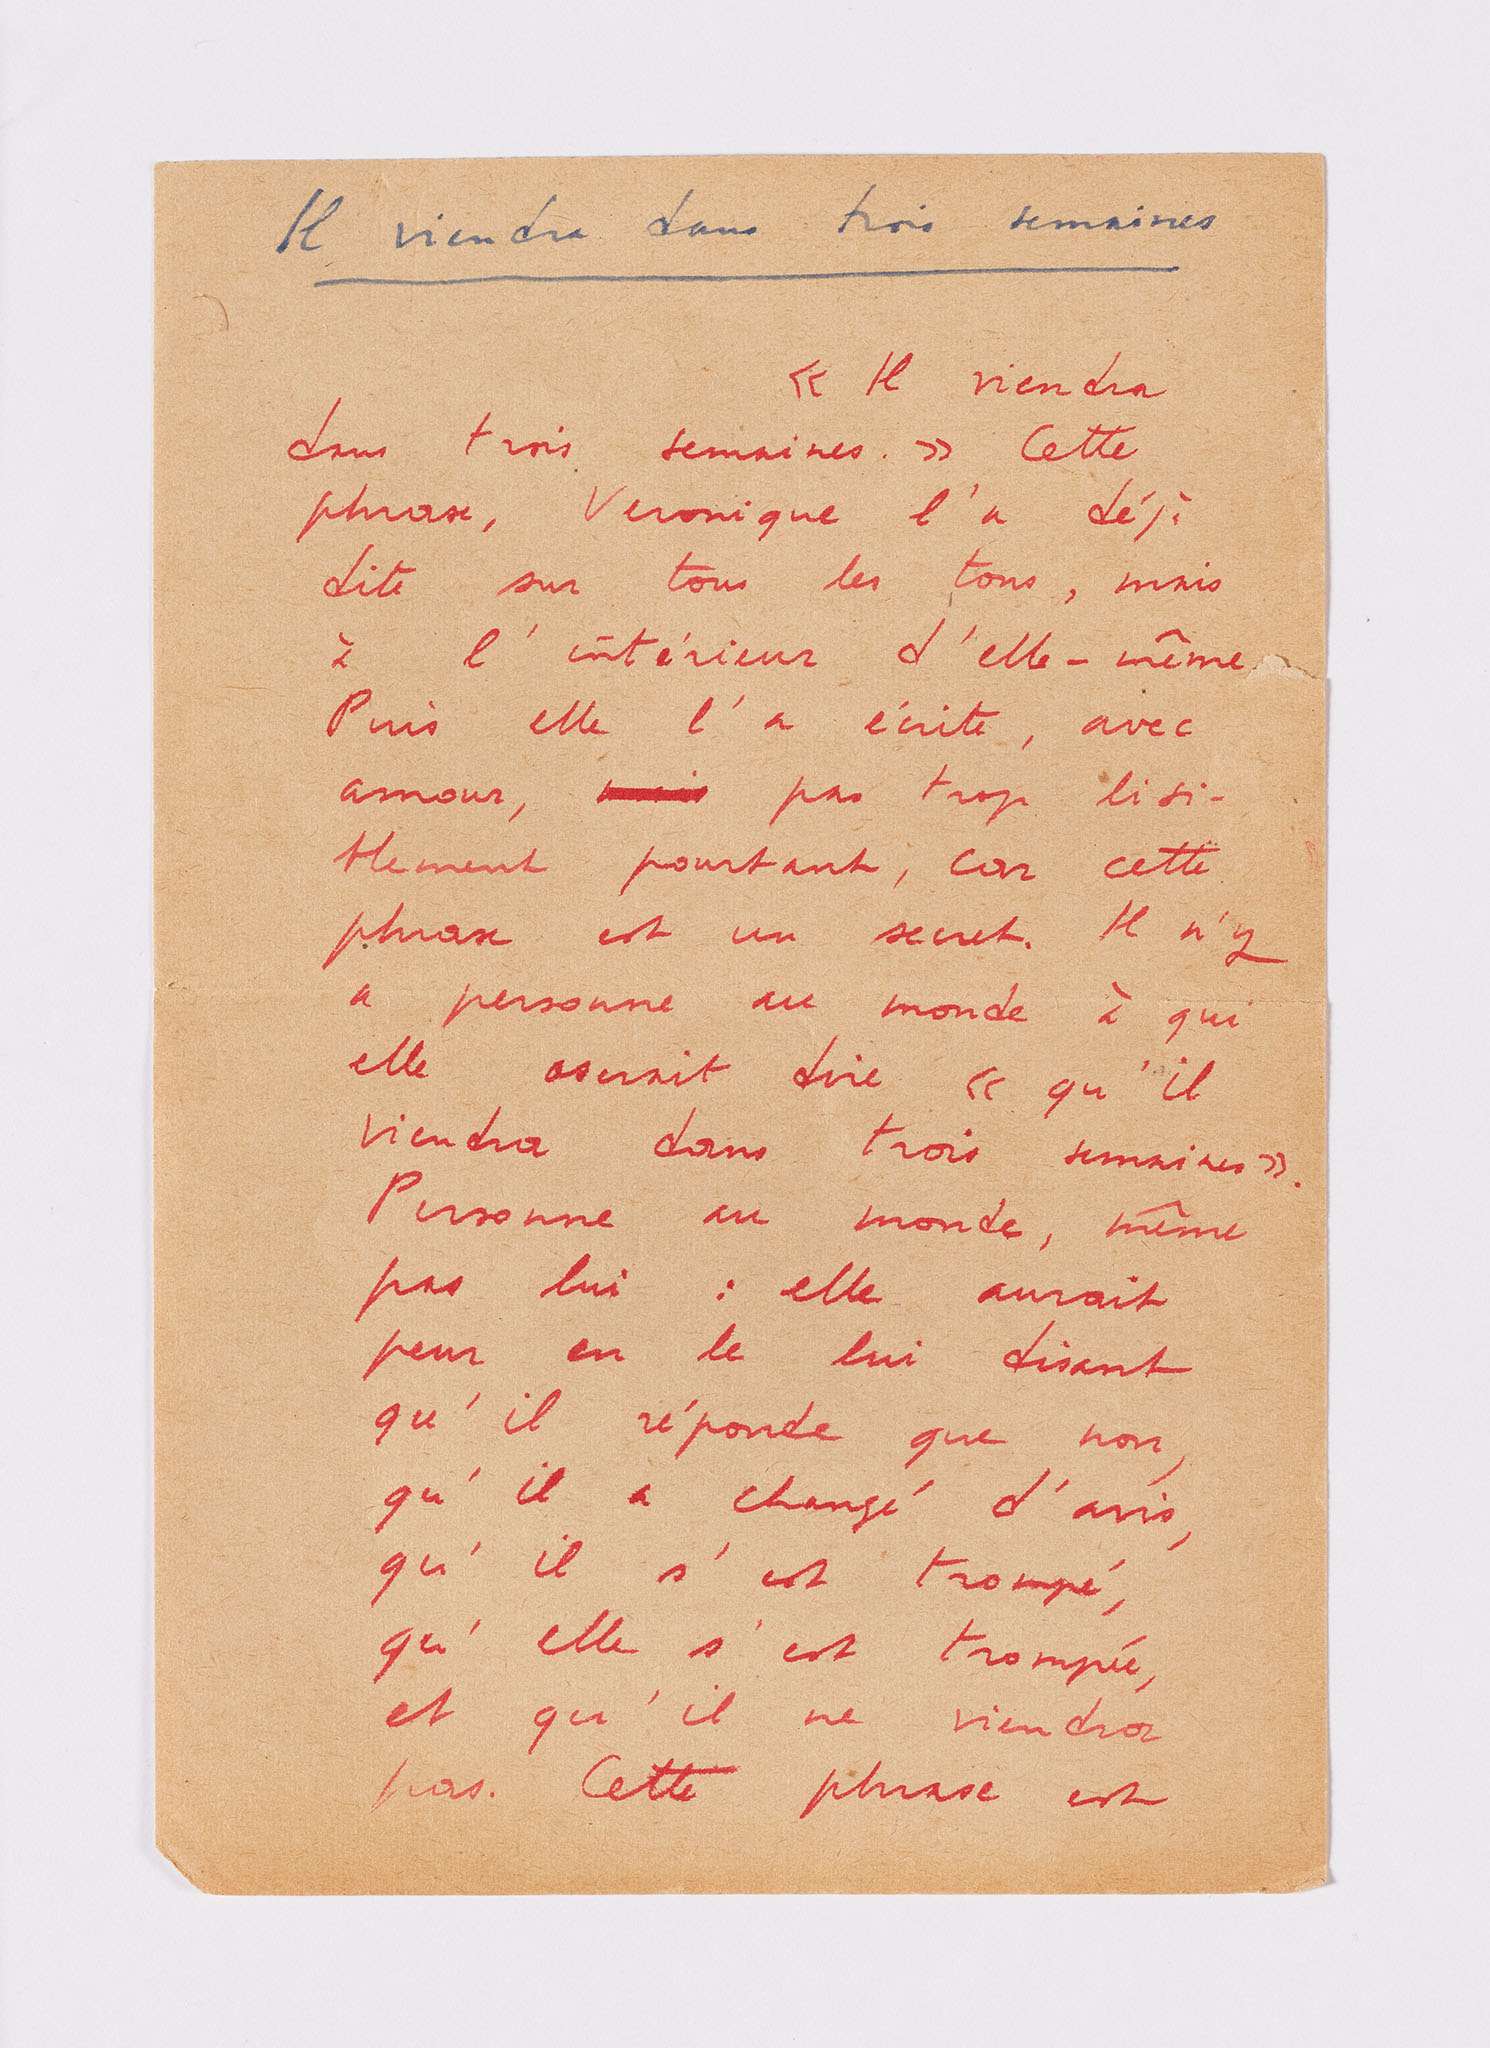 Il viendra dans trois semaines
« Il viendra
dans trois semaines. » Cette
phrase, Veronique l'a déjà
dite sur tous les tons, mais
à l'intérieur d'elle-même
Puis elle l'a écrite, avec
amour, mais pas trop lisi-
blement pourtant, car cette
phrase est un secret. Il n'y
a personne au monde à qui
elle oserait dire « qu'il
viendra dans trois semaines ».
Personne au monde, même
pas lui : elle aurait
peur en le lui disant
qu'il réponde que non,
qu'il a changé d'avis,
qu'il s'est trompé,
qu'elle s'est trompée,
et qu'il ne viendra
pas. Cette phrase est